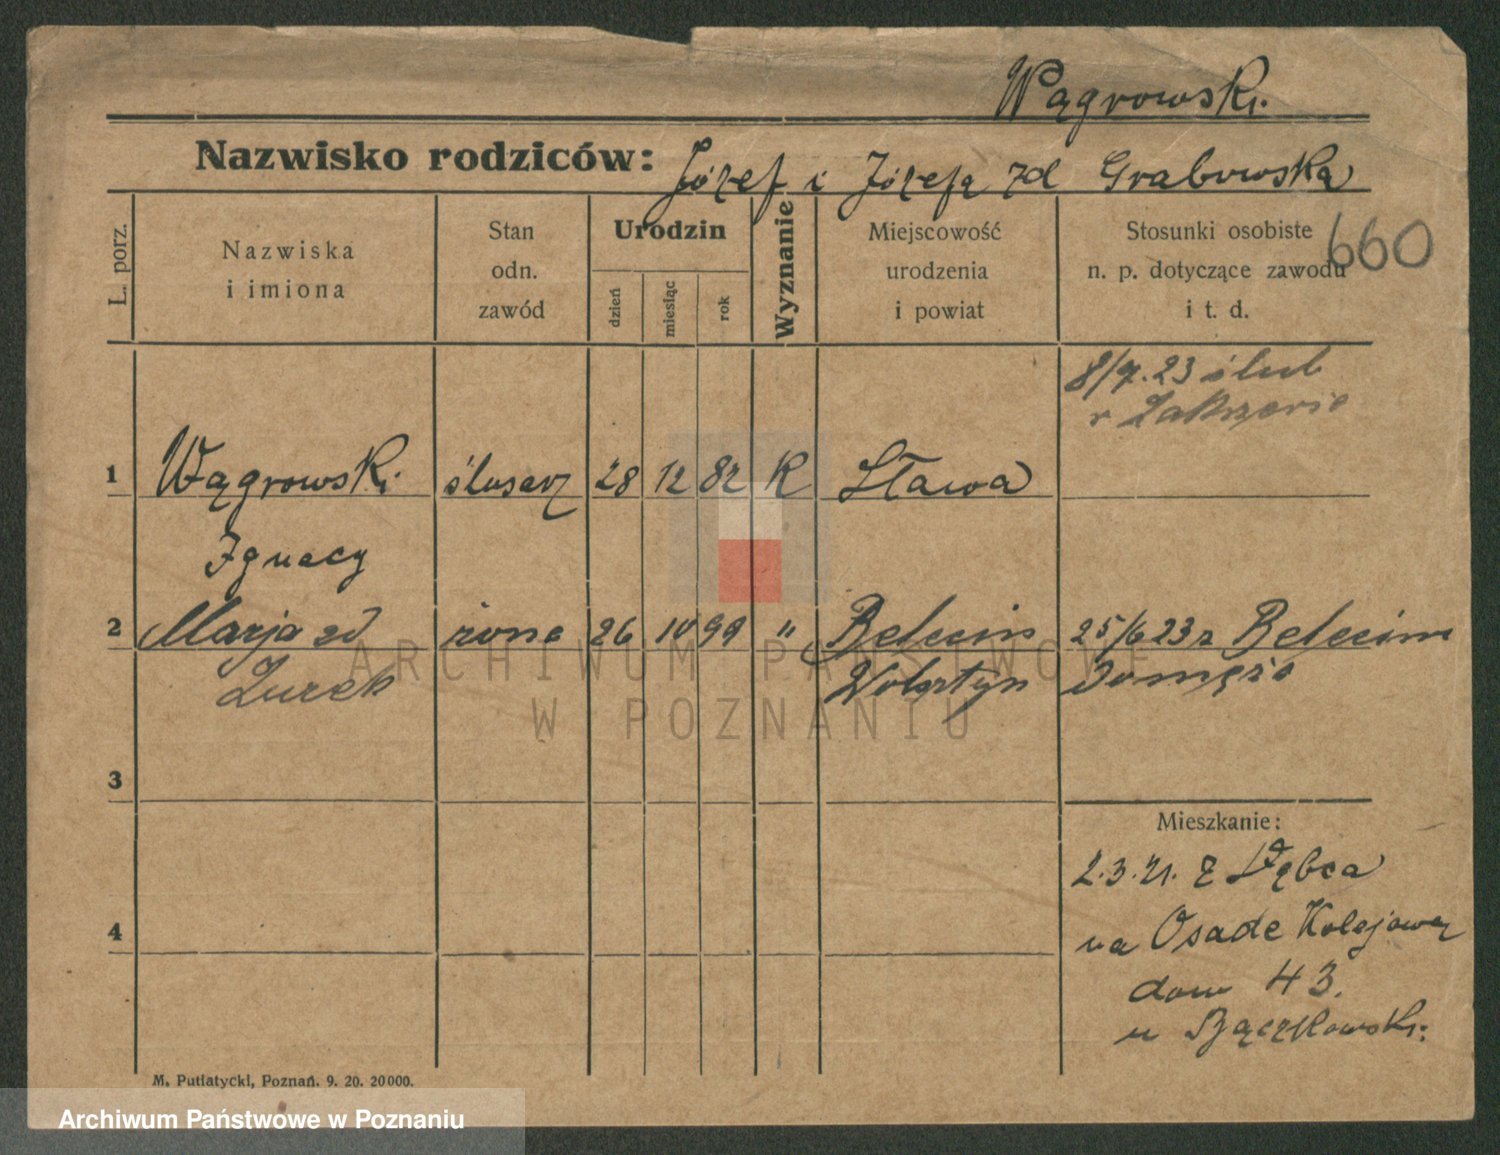 Wągrowski.
Nazwisko rodziców: Józef i Józefa zd Grabowska
L. porz.
Nazwiska
i imiona
Stan
odn.
zawód
Urodzin
dzień
miesiąc
rok
Wyznanie
Miejscowość
urodzenia
i powiat
Stosunki osobiste
n. p. dotyczące zawodu
i t. d.
660
8/7.23 ślub
w Zakrzewie
1 Wągrowski ślusarz 28 12 82 K Sława
Ignacy
2 Marja zd żona 26 10 99 " Belecin 25/6 23 z Belecina
Żurek Wolsztyn
3
Mieszkanie:
2.3.21. z Dębca
4
na Osade Kolejową
dom 43.
u Bączkowski.
M. Putiatycki, Poznań. 9. 20. 20000.
ARCHIWUM PAŃSTWOWE
W POZNANIU
Archiwum Państwowe w Poznaniu